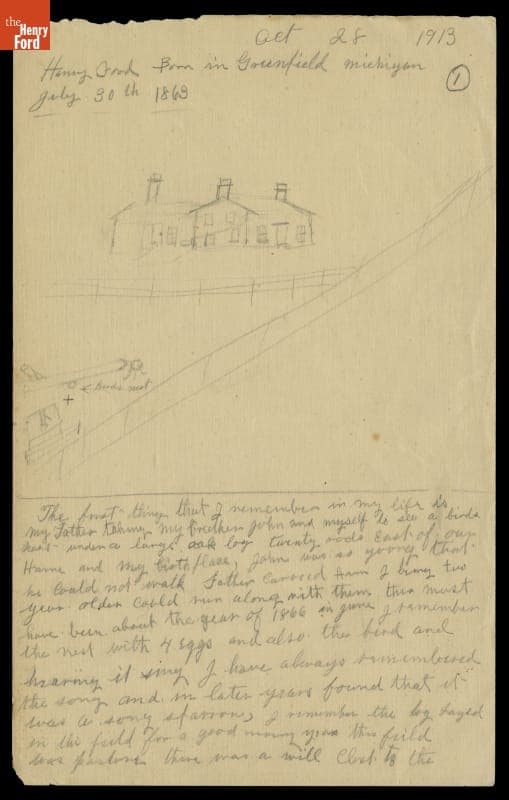 the
Henry
Ford
Oct 28 1913
Henry Ford Born in Greenfield michigan
July 30 th 1863
1
Birds nest
The first thing that I remember in my life is
my Father taking my brother John and myself to see a birds
nest under a large oak log twenty rods East of our
Home and my birth place, John was so young that
he Could not walk Father Carried Him I being two
years older Could run along with them this must
have been about the year of 1866 in june I remember
the nest with 4 eggs and also the bird and
hearing it sing I have always remembered
the song and in later years found that it
was a song sparrow, I remember the log layed
in the field for a good many years this field
was pasture there was a will Clost to the